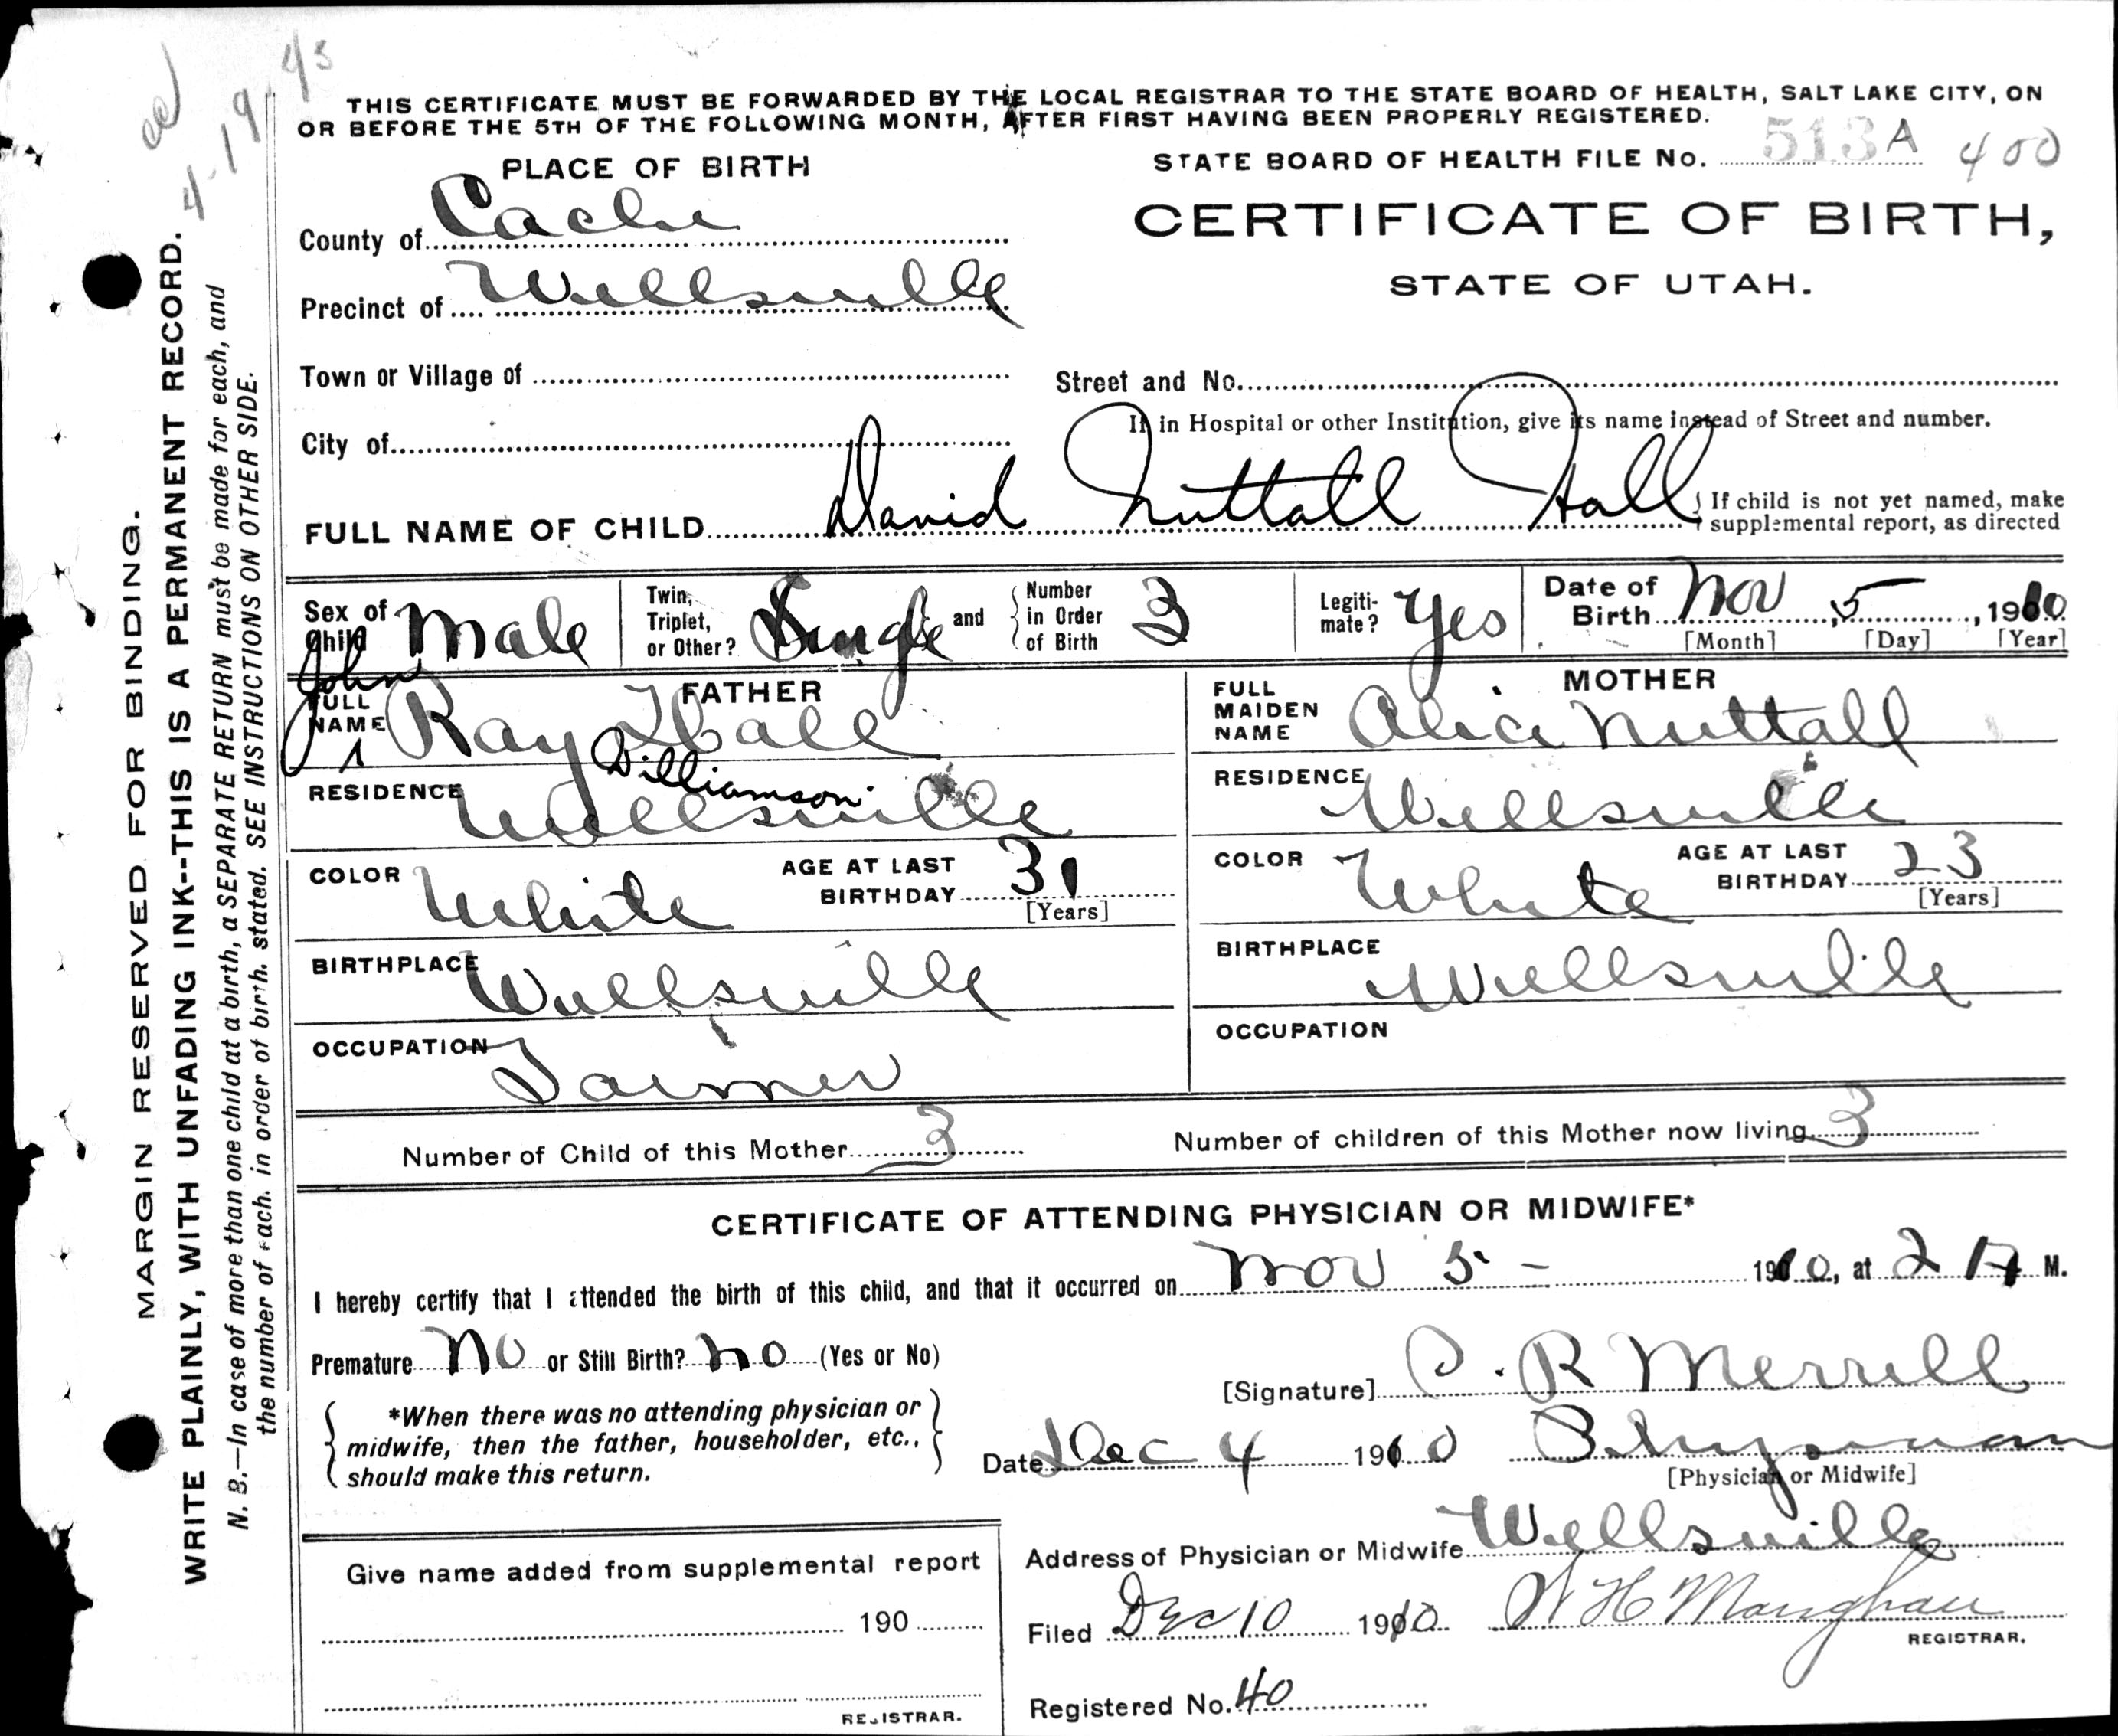 THIS CERTIFICATE MUST BE FORWARDED BY THE LOCAL REGISTRAR TO THE STATE BOARD OF HEALTH, SALT LAKE CITY, ON
OR BEFORE THE 5TH OF THE FOLLOWING MONTH, AFTER FIRST HAVING BEEN PROPERLY REGISTERED.
4-19-43
STATE BOARD OF HEALTH FILE No. 513 A 400
PLACE OF BIRTH
CERTIFICATE OF BIRTH,
STATE OF UTAH.
County of Cache
Precinct of Wellsville
Town or Village of
Street and No.
If in Hospital or other Institution, give its name instead of Street and number.
City of
FULL NAME OF CHILD David Nuttall Hall
If child is not yet named, make
supplemental report, as directed
Sex of Child Male
Twin, Triplet, or Other? Single and Number in Order of Birth 3
Legiti-mate? Yes
Date of Birth Nov 5, 1910
[Month] [Day] [Year]
FATHER
FULL NAME John Ray Williamson Hall
RESIDENCE Wellsville
COLOR White
AGE AT LAST BIRTHDAY 31
[Years]
BIRTHPLACE Wellsville
OCCUPATION Farmer
MOTHER
FULL MAIDEN NAME Alice Nuttall
RESIDENCE Wellsville
COLOR White
AGE AT LAST BIRTHDAY 23
[Years]
BIRTHPLACE Wellsville
OCCUPATION
Number of Child of this Mother 3
Number of children of this Mother now living 3
CERTIFICATE OF ATTENDING PHYSICIAN OR MIDWIFE*
I hereby certify that I attended the birth of this child, and that it occurred on Nov 5 - 1910, at 2 A M.
Premature No or Still Birth? No (Yes or No)
*When there was no attending physician or
midwife, then the father, householder, etc.,
should make this return.
[Signature] R Merrill
Date Dec 4 1910 Physician
[Physician or Midwife]
Address of Physician or Midwife Wellsville
Filed Dec 10 1910 W H Maughan
REGISTRAR.
Registered No. 40
Give name added from supplemental report
190
REGISTRAR.
MARGIN RESERVED FOR BINDING.
WRITE PLAINLY, WITH UNFADING INK--THIS IS A PERMANENT RECORD.
N. B.—In case of more than one child at a birth, a SEPARATE RETURN must be made for each, and
the number of each. in order of birth. stated. SEE INSTRUCTIONS ON OTHER SIDE.